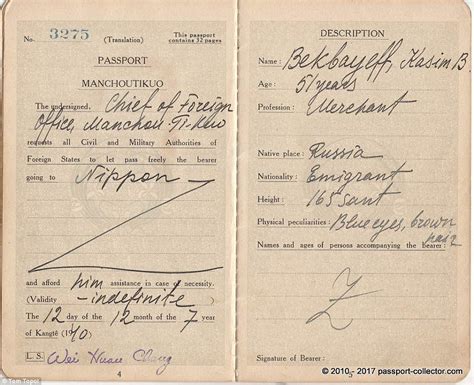 No. 3275 (Translation) This passport contains 32 pages
PASSPORT
MANCHOUTIKUO
The undersigned, Chief of Foreign
Office, Manchou-Ti-Kuo
requests all Civil and Military Authorities of
Foreign States to let pass freely the bearer
going to Nippon -
and afford him assistance in case of necessity.
(Validity - indefinite
The 12 day of the 12 month of the 7 year
of Kangtê (1940)
L. S. Wei Huan Chang
4
© Tom Topol
DESCRIPTION
Name: Bekbayeff, Kasim B
Age: 51 years
Profession: Merchant
Native place: Russia
Nationality: Emigrant
Height: 165 sant
Physical peculiarities: Blue eyes, brown
hair
Names and ages of persons accompanying the bearer:
Signature of Bearer:
© 2010 - 2017 passport-collector.com